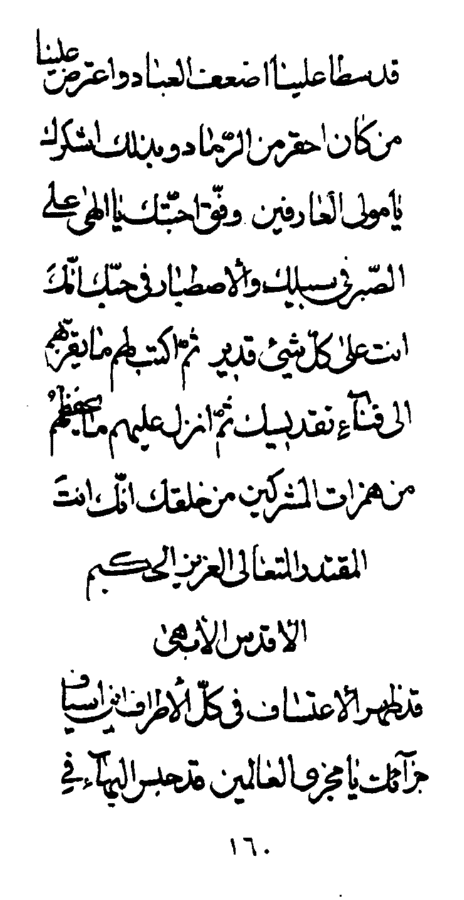 قد سطا علينا اضعف العباد و اعترض علينا
من كان احقر من الرّماد و بذلك اشكرك
يا مولى العارفين وفّق احبّتك يا الهى على
الصّبر فى سبيلك والاصطبار فى حبّك انّك
انت على كلّ شيئ قدير ثمّ اكتب لهم ما يقرّبهم
الى فنآء تقديسك ثمّ انزل عليهم ما يحفظهم
من همزات المشركين من خلقك انّك انت
المقتدر المتعالى العزيز الحكيم
الاقدس الأبهى
قد ظهر الاعتساف فى كلّ الأطراف اين اسياف
جزآئك يا مجزى العالمين قد حبس البهآء فى
١٦٠